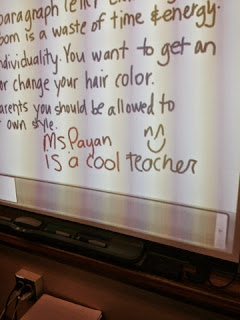 paragraph
is a waste of time & energy.
individuality. You want to get an
or change your hair color.
you should be allowed to
own style.
Ms Payan
is a cool teacher